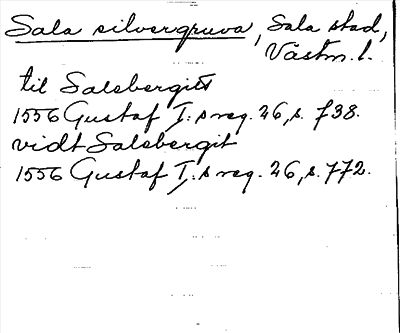 Sala silvergruva, Sala stad,
Västm. l.
til Salsbergit
1556 Gustaf I:s reg. 26, s. 738.
vidt Salsbergit
1556 Gustaf I:s reg. 26, s. 772.